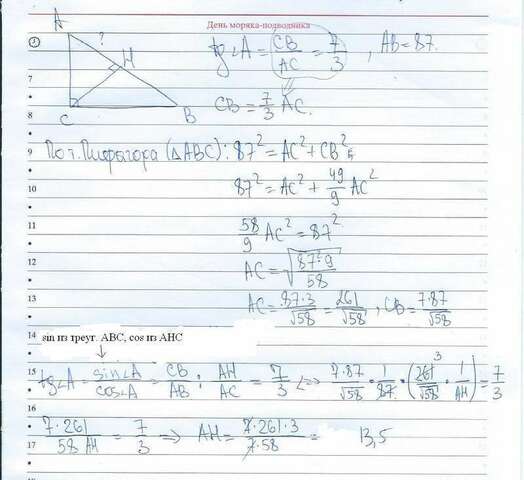 День моряка-подводника
A
?
H
C
B
tg∠A = CB/AC = 7/3, AB=87.
7
CB = 7/3 AC.
8
9 По т. Пифагора (△ABC): 87² = AC² + CB²
87² = AC² + 49/9 AC²
10
11 58/9 AC² = 87²
12 AC = √(87²·9/58)
13 AC = 87·3/√58 = 261/√58, CB = 7·87/√58
14 sin из треуг. ABC, cos из AHC
15 tg∠A = sin∠A/cos∠A = CB/AB : AH/AC = 7/3 <=> 7·87/√58 · 1/87 · (261/√58 · 1/AH) = 7/3
3
16
17 7·261/58 AH = 7/3 => AH = 7·261·3/7·58 = 13,5